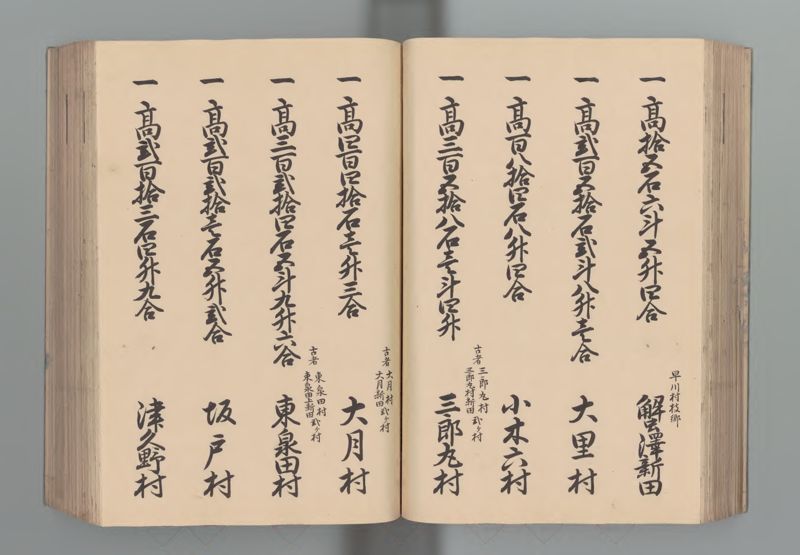 早川村枝郷
一 高拾五石六斗五升四合 蟹澤新田
一 高弐百五拾石弐斗八升壱合 大里村
一 高百八拾四石八升四合 小木六村
古者 三郎丸村 三郎丸村新田 弐ヶ村
一 高三百五拾八石壱斗四升 三郎丸村
古者 大月村 大月新田 弐ヶ村
一 高四百四拾石壱升三合 大月村
古者 東泉田村 東泉田上新田 弐ヶ村
一 高三百弐拾四石五斗九升六合 東泉田村
一 高弐百弐拾壱石五升弐合 坂戸村
一 高弐百拾三石四升九合 津久野村